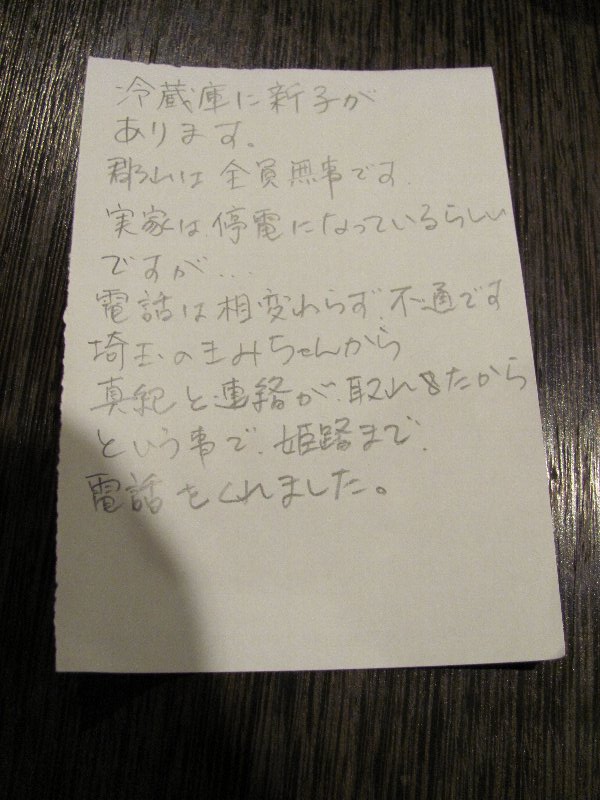 冷蔵庫に新子が
あります。
郡山は全員無事です.
実家は停電になっているらしい
ですが...
電話は相変わらず.不通です
埼玉のまみちゃんから
真紀と連絡が.取れたから
という事で.姫路まで.
電話をくれました。